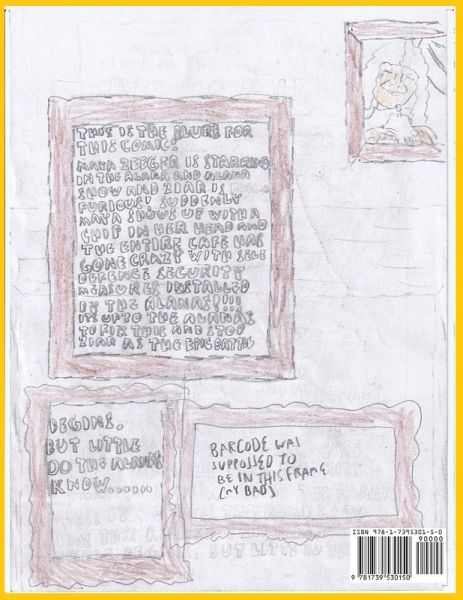 THIS IS THE BLURB FOR
THIS COMIC!
MAYA ZEEGER IS STARRING
IN THE ALANA AND ALANA
SHOW AND ZIAR IS
FURIOUS! SUDDENLY
MAYA SHOWS UP WITH A
CHIP IN HER HEAD AND
THE ENTIRE CAFE HAS
GONE CRAZY WITH SELF
DEFENCE SECURITY
MEASURES INSTALLED
BY THE ALANAS!!!!
ITS UP TO THE ALANAS
TO FIX THIS AND STOP
ZIAR AS THE EPIC BATTLE
BEGINS.
BUT LITTLE
DO THE ALANAS
KNOW......
BARCODE WAS
SUPPOSED TO
BE IN THIS FRAME
(MY BAD)
ISBN 978-1-7395301-5-0
90000
9 781739 530150